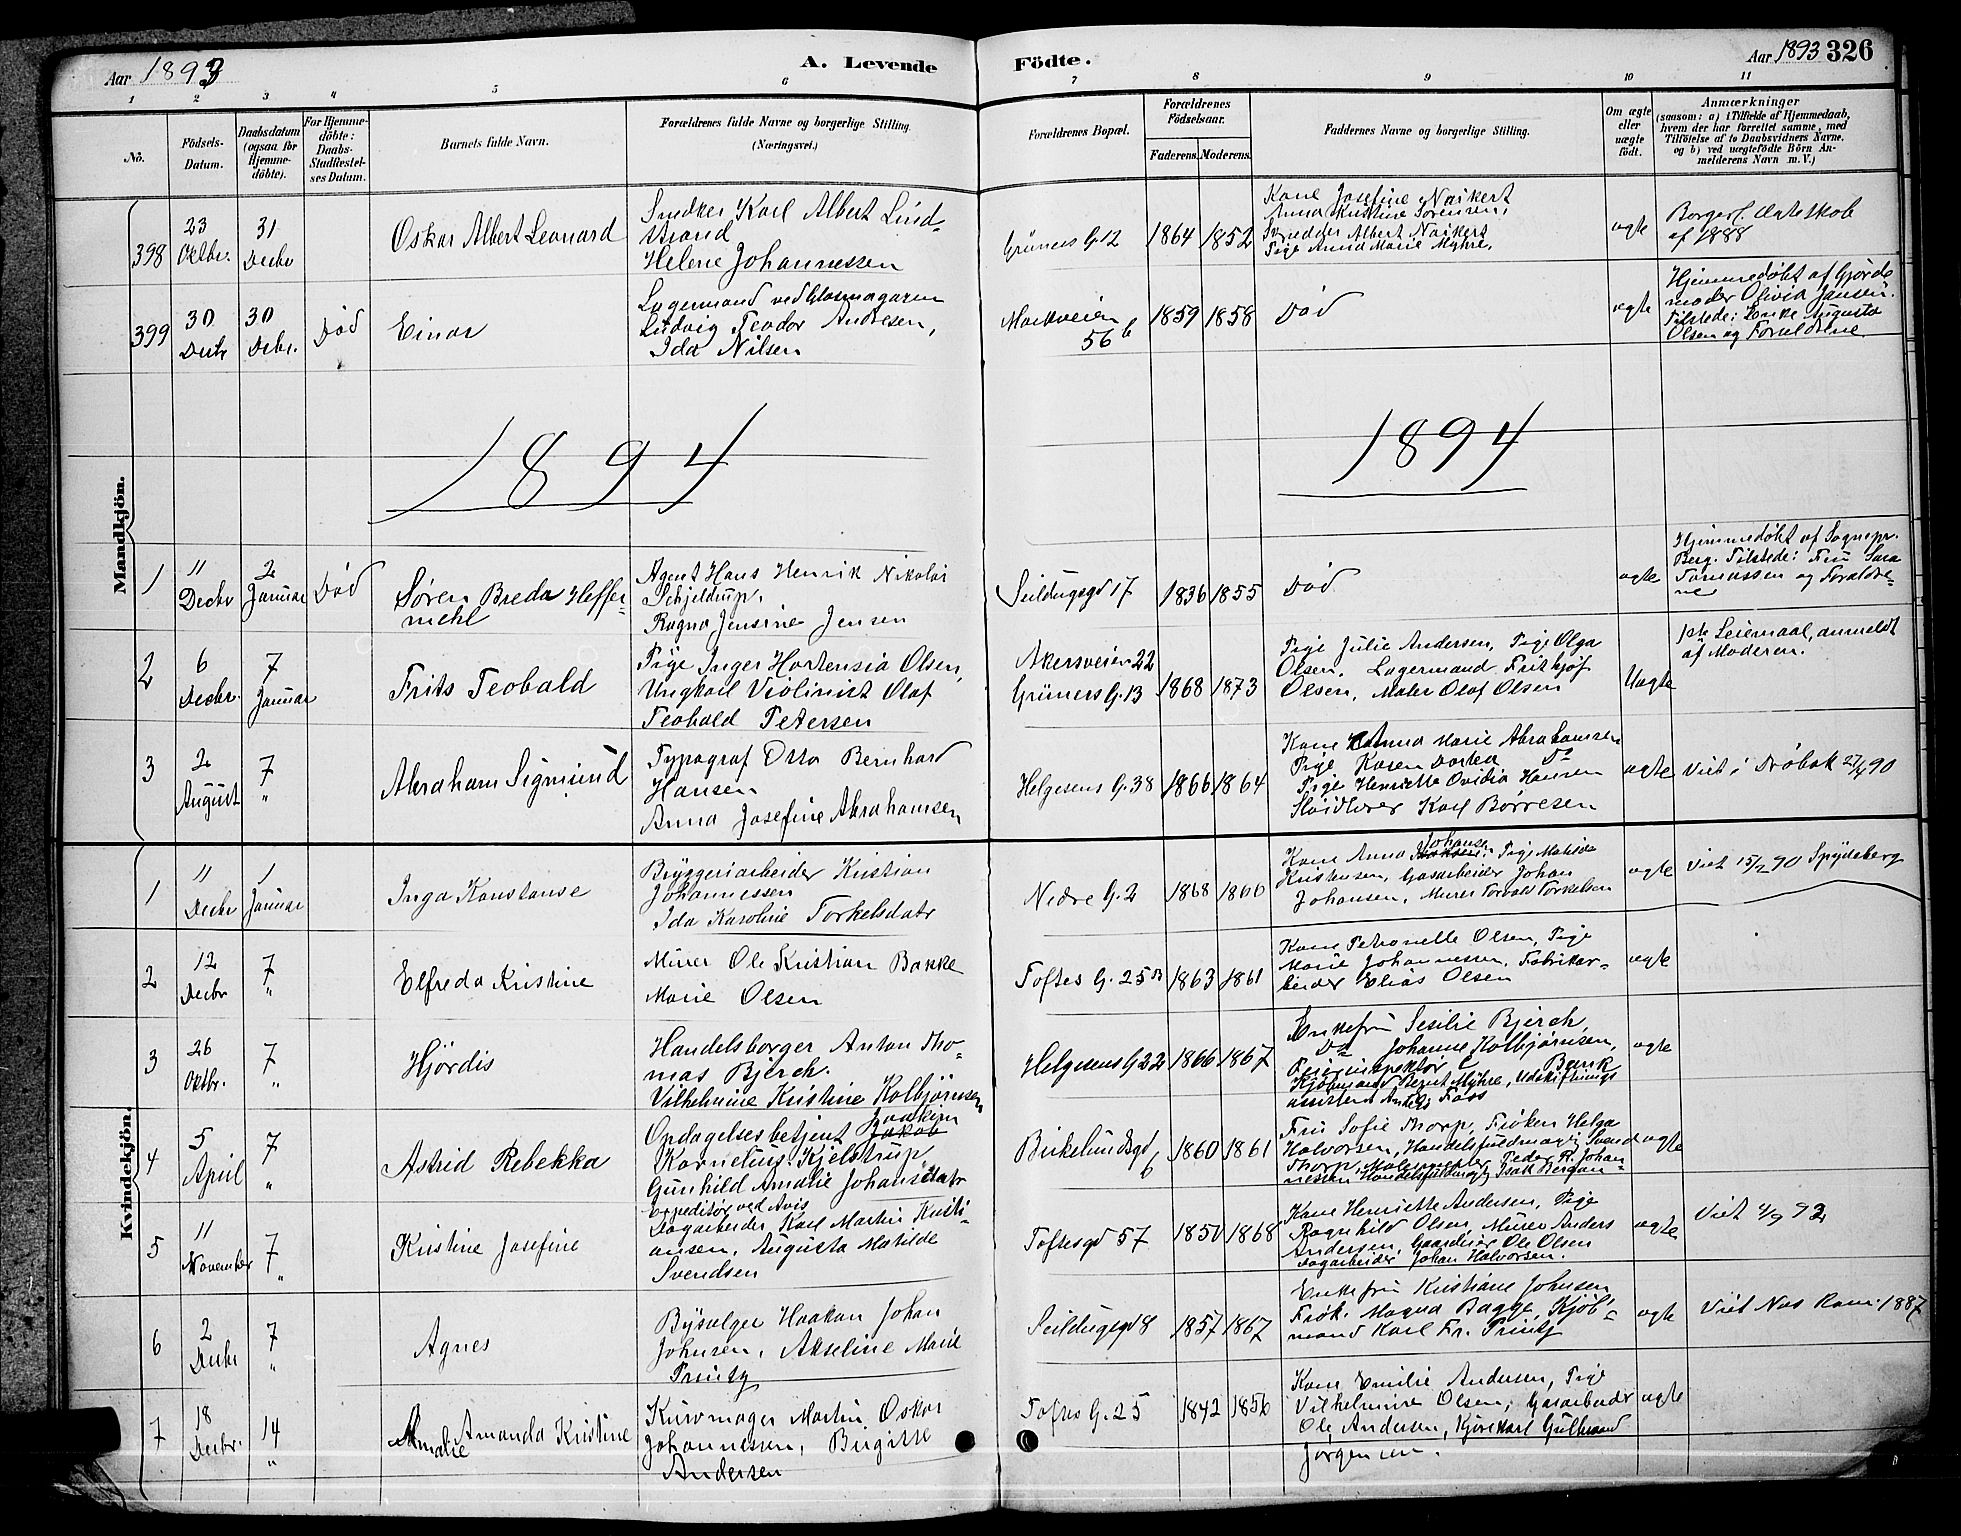 Aar 1893
A. Levende
Födte.
Aar 1893 326
1 2 3 4 5 6 7 8 9 10 11
No.
Födsels-
Datum.
Daabsdatum
(ogsaa for
Hjemme-
döbte).
For Hjemme-
döbte:
Daabs-
Stadfæstel-
ses Datum.
Barnets fulde Navn.
Forældrenes fulde Navne og borgerlige Stilling.
(Næringsvei.)
Forældrenes Bopæl.
Forældrenes
Födselsaar.
Faderens. Moderens.
Faddernes Navne og borgerlige Stilling.
Om ægte
eller
uægte
födt.
Anmærkninger
(saasom: a) i Tilfælde af Hjemmedaab,
hvem der har forrettet samme, med
Tilföielse af to Daabsvidners Navne.
og b) ved uægtefödte Börn An-
melderens Navn m. V.)
Mandkjön.
398
23
Oktbr.
31
Decbr
Oskar Albert Leonard
Snedker Karl Albert Lind-
strand
Helene Johannessen
Grüners G. 12
1864 1852
Kone Josefine Naikert
Anna Kristine Sörensen,
Snedker Albert Naikert
Pige Anna Marie Myhre,
ægte
Borgerl. Ægteskab
af 1888
399
30
Decbr
30
Debr.
Död
Einar
Lagermand ved Glasmagasin
Ludvig Teodor Andresen,
Ida Nilsen
Markveien
56 b
1859 1858
Död
ægte
Hjemmedöbt af Gjorde
moder Olivia Jansen.
Tilstede: Enke Augusta
Olsen og Forældrene
1894
1894
1
11
Decbr
2
Januar
Död
Sören Breda Heffer-
mehl
Agent Hans Henrik Nikolai
Schjeldrup.
Ragna Jensine Jensen
Seildugsgd 17
1836 1855
Död
ægte
Hjemmedöbt af Sognepr.
Berg. Tilstede: Fru Sara
Tomassen og Forældre-
ne
2
6
Decbr.
7
Januar
Frits Teobald
Pige Inger Hortensia Olsen,
Ungkarl Violinist Olaf
Teobald Petersen
Akersveien 22
Grüners G. 13
1868 1873
Pige Julie Andersen, Pige Olga
Olsen, Lagermand Fritkjöf
Olsen, Maler Olaf Olsen
Uægte
1ste Leiermaal, anmeldt
af Moderen.
3
2
August
7
"
Abraham Sigmund
Typograf Otto Bernhard
Hansen
Anna Josefine Abrahamsen
Helgesens G. 38
1866 1864
Kone Anna Marie Abrahamsen
Pige Karen Dorthea Do
Pige Henriette Ovidia Hansen
Slöidlærer Karl Börresen
ægte
Viet i Dröbak 27/4 90
Kvindekjön.
1
11
Decbr
1
Januar
Inga Konstanse
Bryggeriarbeider Kristian
Johannessen
Ida Karoline Torkelsdatr
Nedre G. 2
1868 1866
Kone Anna Johansen, Pige Matilde
Kristensen, Gasarbeider Johan
Johansen, Murer Torvald Torkelsen
ægte
Viet 15/2 90 Spydeberg
2
12
Decbr
7
"
Elfreda Kristine
Murer Ole Kristian Bakke
Marie Olsen
Toftes G. 25 B
1863 1861
Kone Petronelle Olsen, Pige
Marie Johannessen, Fabrikar-
beider Elias Olsen
ægte
3
26
Oktbr.
7
"
Hjördis
Handelsborger Anton Tho-
mas Bjerch.
Vilhelmine Kristine Kolbjörnsen
Helgesens G 22
1866 1867
Enkefru Sesilie Bjerch,
Do Johanne Kolbjörnsen,
Kjöbmand Bernt Myhre, Udskiftnings
assistent Foss
ægte
4
5
April
7
"
Astrid Rebekka
Opdagelsesbetjent Joakim
Kornelius Kjelstrup,
Gunhild Amalie Johansdatr
Birkelundsgd
6
1860 1861
Fru Sofie Thorp, Fröken Helga
Halvorsen, Handelsfuldmægtig Svend
Thorp, Peder R. Johan-
nessen Handelsfuldmægtig Isak Bergan-
ægte
5
11
November
7
"
Kristine Josefine
Expeditör ved Avis
Dagarbeider Karl Martin Kristi-
ansen, Augusta Matilde
Svendsen
Toftesgd 57
1850 1868
Kone Henriette Andersen, Pige
Ragnhild Olsen, Murer Anders
Andersen, Gaardeier Ole Olsen
Dagarbeider Johan Halvorsen.
ægte
Viet 4/9 92
6
2
Decbr
7
"
Agnes
Bysælger Haakon Johan
Johnsen, Akseline Marie
Printz
Seildugsgd 8
1857 1867
Enkefru Kristiane Johnsen
Frök. Magna Bagge, Kjöb-
mand Karl Fr. Printz
ægte
Viet Nes Rom. 1887
7
18
Decbr.
14
"
Amanda Kristine
Amalie
Kurvmager Martin Oskar
Johannessen, Birgitte
Andersen
Toftes G. 25
1842 1856
Kone Emilie Andersen, Pige
Vilhelmine Olsen, Gasarbeider
Ole Andersen, Kjörekarl Gulbrand
Jörgensen.
ægte